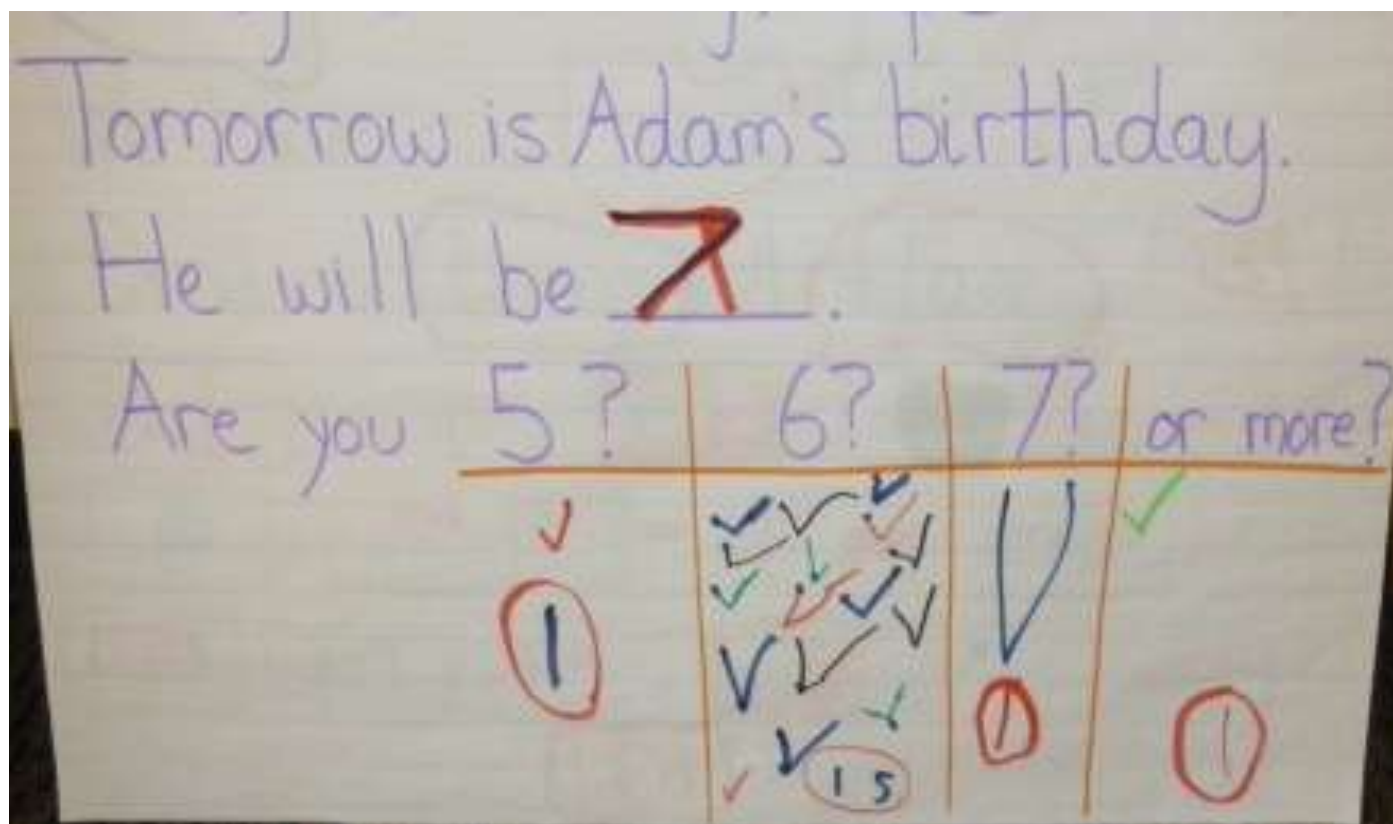 Tomorrow is Adam's birthday.
He will be 7.
Are you 5? 6? 7? or more?
1 15 1 1